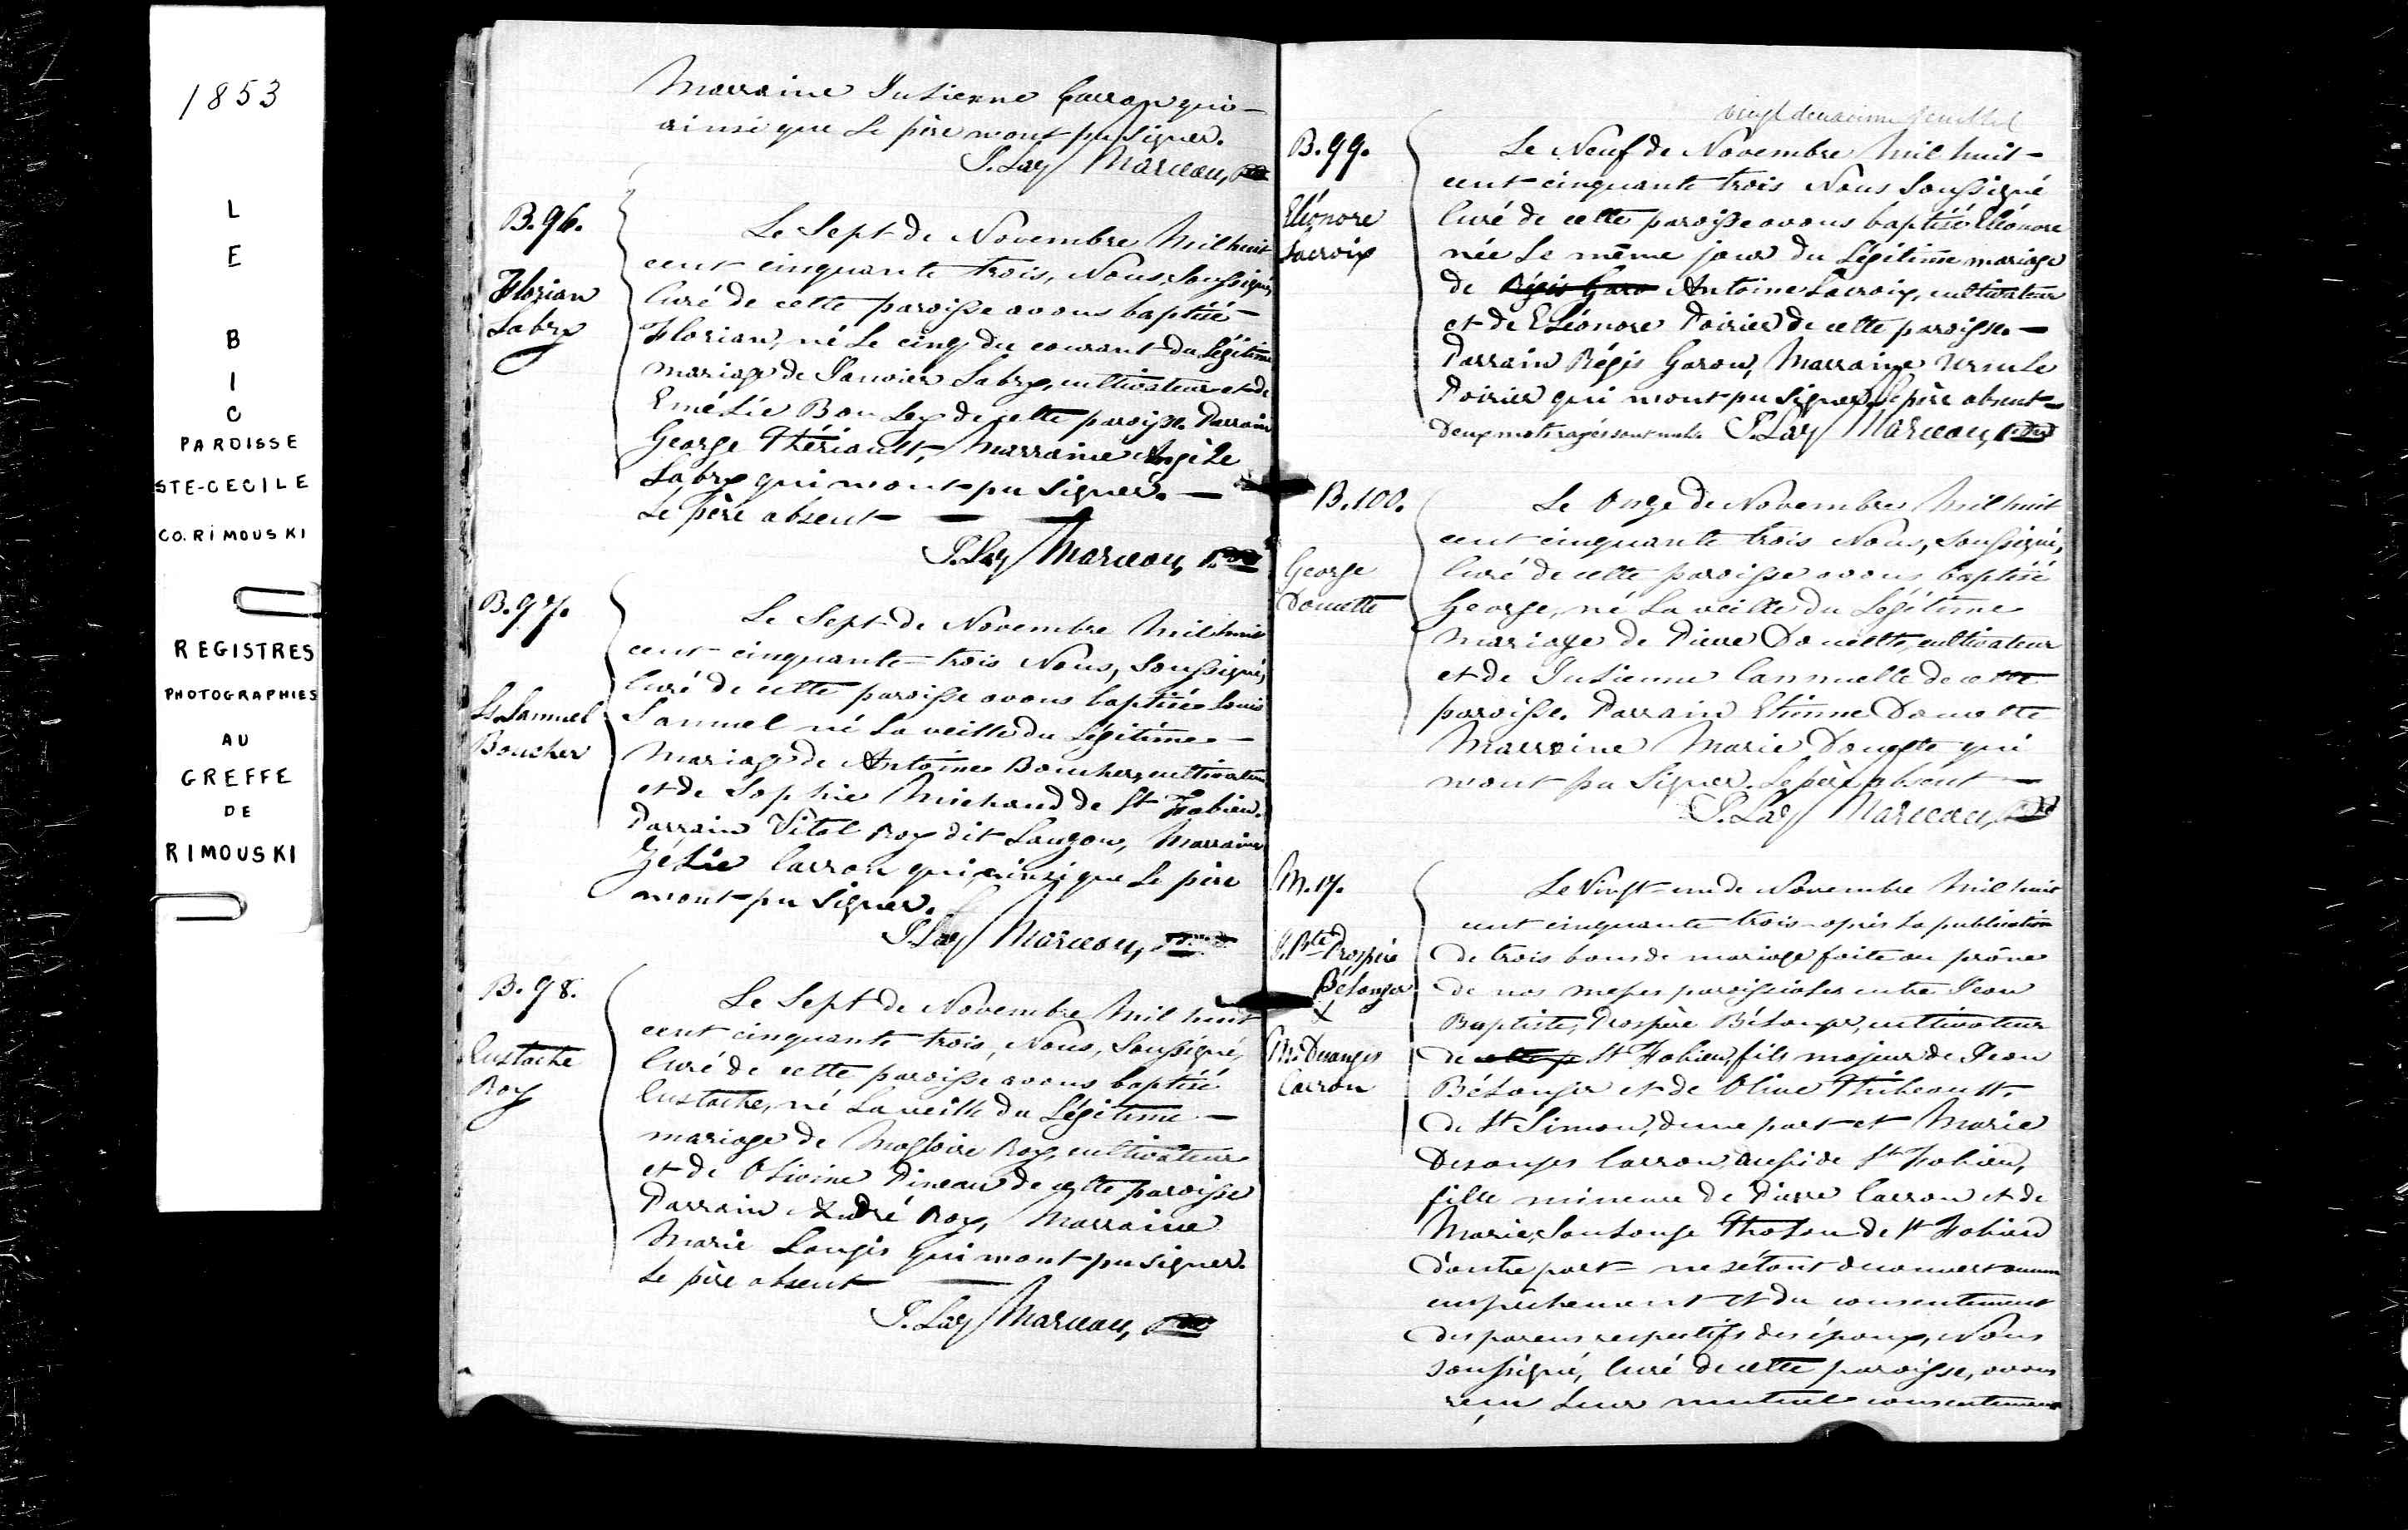 1853
LE BIC
PAROISSE
STE-CECILE
CO. RiMOUSKI
REGISTRES
PHOTOGRAPHIES
AU
GREFFE
DE
RIMOUSKI
Marraine Julienne Carron qui
ainsi que le père n'ont pu signer.
J. Laz Marceau, Ptre
B. 96.
Florian
Labry
Le Sept de Novembre Mil huit
cent cinquante trois, Nous, Soussigné,
Curé de cette paroisse avons baptisé
Florian, né le cinq du courant du légitime
mariage de Janvier Labry, cultivateur et de
Emélie Bouley de cette paroisse. Parrain
George Thériault, Marraine Angèle
Labry qui n'ont pu signer.
Le père absent
J. Laz Marceau, Ptre
B. 97.
Ls. Samuel
Boucher
Le Sept de Novembre Mil huit
cent cinquante trois Nous, Soussigné,
Curé de cette paroisse avons baptisé Louis
Samuel né la veille du légitime
Mariage de Antoine Boucher, cultivateur
et de Sophie Michaud de St Fabien.
Parrain Vital Roy dit Lauzon, Marraine
Zélie Carron qui, ainsi que le père
n'ont pu signer.
J. Laz Marceau, Ptre
B. 98.
Eustache
Roy
Le Sept de Novembre Mil huit
cent cinquante trois, Nous, Soussigné,
Curé de cette paroisse avons baptisé
Eustache, né la veille du légitime
mariage de Magloire Roy, cultivateur
et de Olivine Pineau de cette paroisse
Parrain André Roy, Marraine
Marie Langis qui n'ont pu signer.
Le père absent
J. Laz Marceau, Ptre
vingt deuxième feuillet
B. 99.
Eléonore
Lacroix
Le Neuf de Novembre Mil huit
cent cinquante trois Nous Soussigné
Curé de cette paroisse avons baptisé Eléonore
née le même jour du légitime mariage
de Régis Garo Antoine Lacroix, cultivateur
et de Eléonore Poirier de cette paroisse.
Parrain Régis Garon, Marraine Ursule
Poirier qui n'ont pu signer. Le père absent
Deux mots rayés sont nuls. J. Laz Marceau, Ptre
B. 100.
George
Doucette
Le Onze de Novembre Mil huit
cent cinquante trois Nous, Soussigné,
Curé de cette paroisse avons baptisé
George, né la veille du légitime
mariage de Pierre Doucette, cultivateur
et de Julienne Cannuelle de cette
paroisse. Parrain Etienne Doucette
Marraine Marie Doucette qui
n'ont pu signer. Le père absent
J. Laz Marceau, Ptre
M. 17.
J. Bte Prospère
Bélanger
&
M. Desanges
Carron
Le Vingt-un de Novembre Mil huit
cent cinquante trois après la publication
de trois bans de mariage faite au prône
de nos messes paroissiales entre Jean
Baptiste, Prospère Bélanger, cultivateur
de St Fabien, fils majeur de Jean
Bélanger et de Olive Thibeault.
de St Simon, d'une part et Marie
Desanges Carron, aussi de St Fabien,
fille mineure de Pierre Carron et de
Marie, Soulange de St Fabien
d'autre part ne s'étant découvert aucun
empêchement et du consentement
des parens respectifs des époux, Nous
soussigné, Curé de cette paroisse, avons
reçu leur mutuel consentement